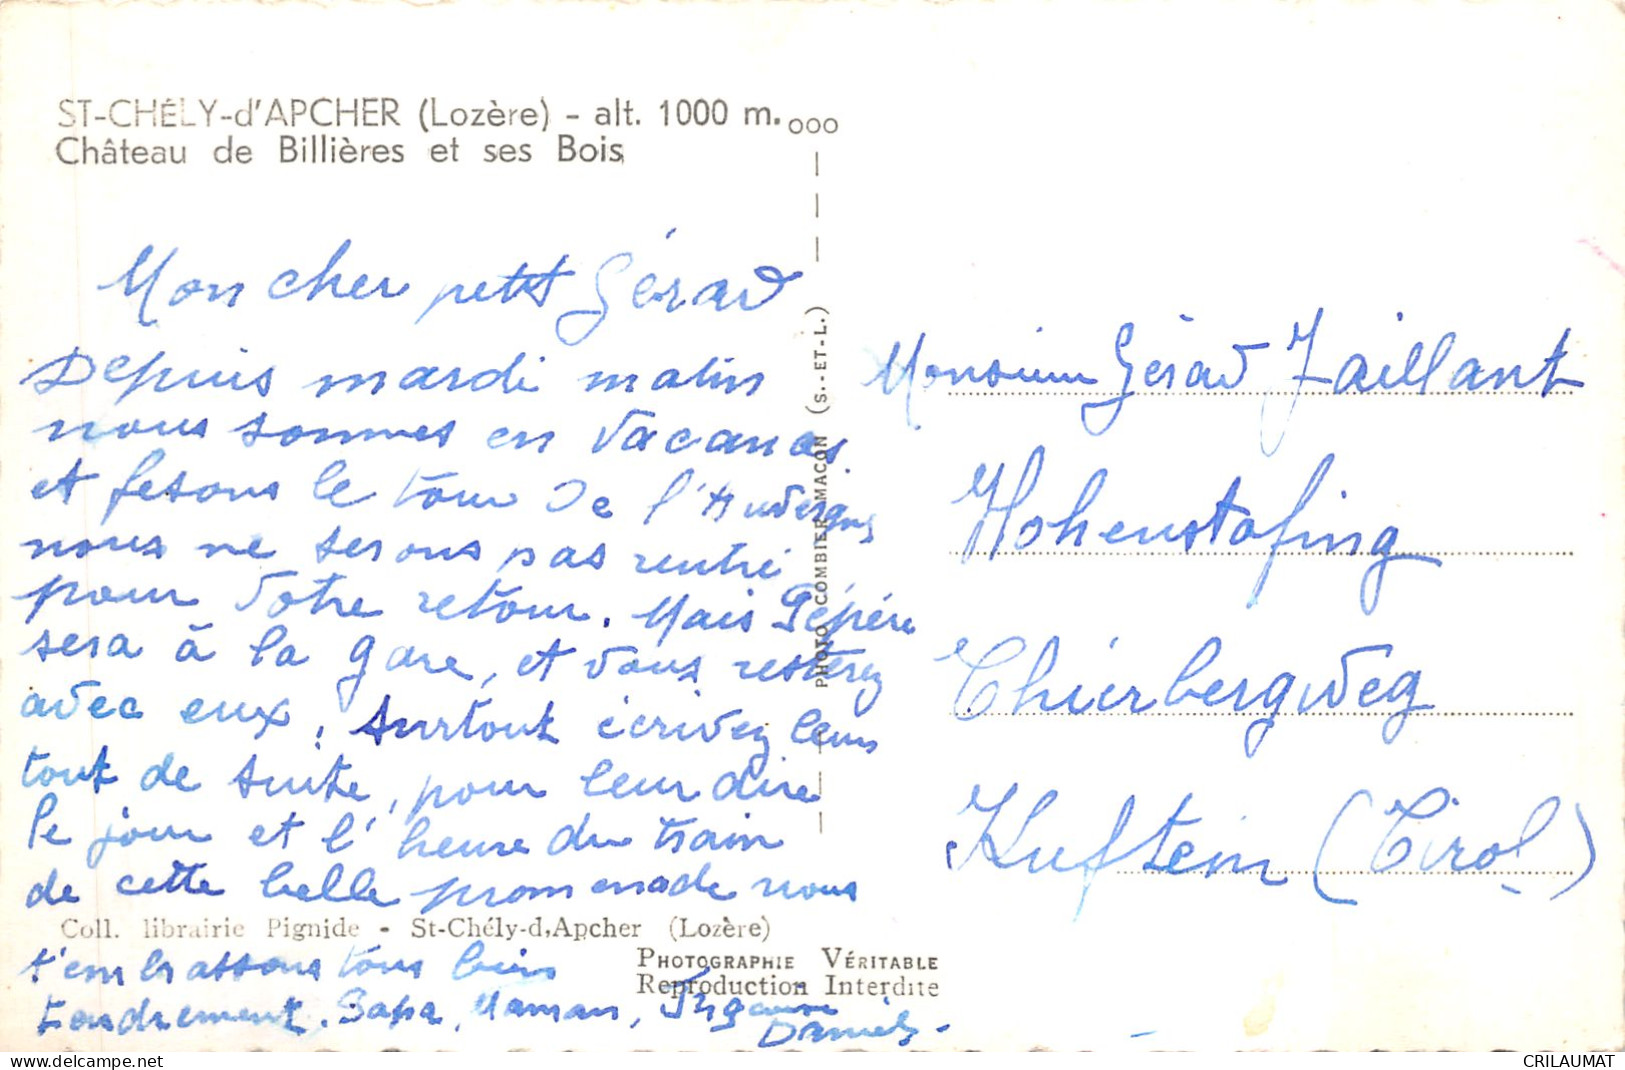 ST-CHÉLY-d'APCHER (Lozère) - alt. 1000 m.
Château de Billières et ses Bois
Mon cher petit Gérard
Depuis mardi matin
nous sommes en vacances
et fesons le tour de l'Auvergne
nous ne serons pas rentré
pour votre retour. Mais Pépère
sera à la gare, et vous resterez
avec eux. Surtout écrivez leur
tout de suite, pour leur dire
le jour et l'heure du train
de cette belle promenade nous
t'embrassons tous bien
tendrement. Papa, Maman,
Daniel.
Coll. librairie Pignide - St-Chély-d,Apcher (Lozère)
PHOTOGRAPHIE VÉRITABLE
Reproduction Interdite
PHOTO COMBIER MACON (S.-ET-L.)
Monsieur Gérard Jaillant
Hohenstafing
Thierbergweg
Kufstein (Tirol)
CRILAUMAT